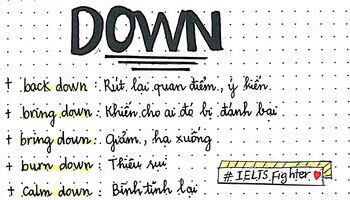 DOWN
+ back down : Rút lại quan điểm, ý kiến
+ bring down : Khiến cho ai đó bị đánh bại
+ bring down : Giảm, hạ xuống
+ burn down : Thiêu rụi
# IELTS Fighter
+ calm down : Bình tĩnh lại